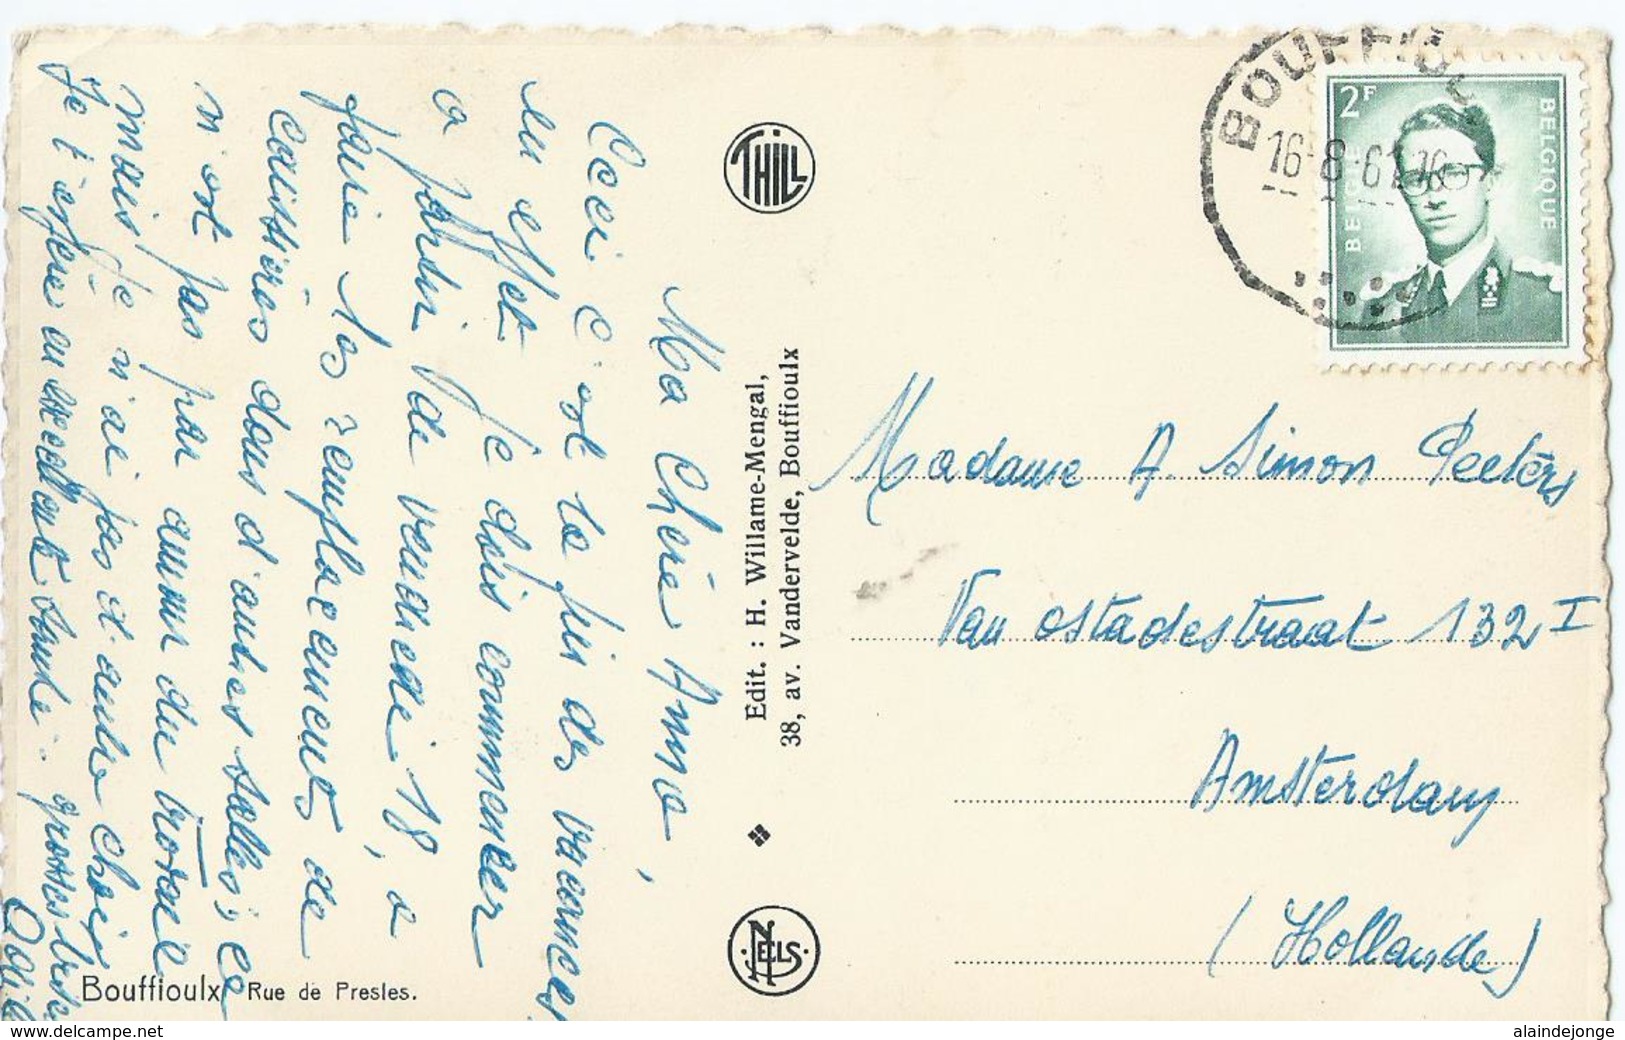 Ma Chère Anne,
Ceci c'est la fin des vacances
en effet je dois commencer
a partir de vendredi 18, a
faire les remplacements de
caissières dans d'autres salles, ce
n'est pas par amour du travail
mais je n'ai pas d'autre choix
Je t'espère en excellente santé. grosses bises
Odile
Bouffioulx Rue de Presles.
THILL
Edit. : H. Willame-Mengal,
38, av. Vandervelde, Bouffioulx
NELS
BOUFFIOU
16-8-61
2F
BELGIE
BELGIQUE
Madame A. Simon Peeters
Van Ostadestraat 132 I
Amsterdam
(Hollande)
www.delcampe.net
alaindejonge